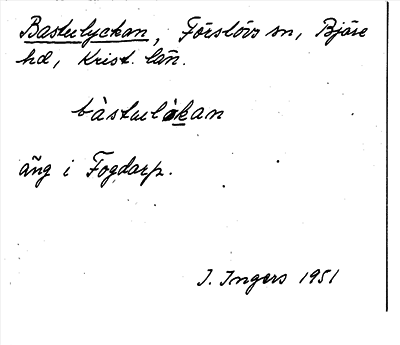 Bastulyckan, Förslövs sn, Bjäre
hd, Krist. län.
bàstulỳkan
äng i Fogdarp.
I. Ingers 1951